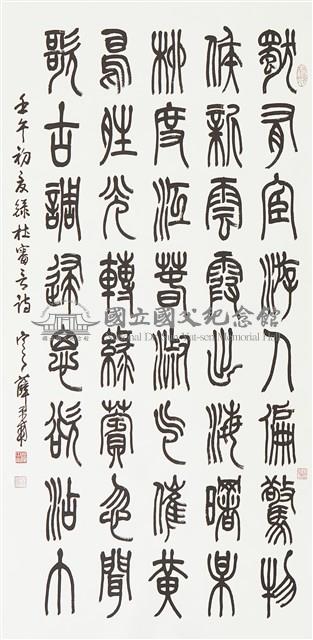 獨有宦游人偏驚物
候新雲霞出海曙某
柳度江春淑气催黃
鳥晴光轉綠薲忽聞
歌古調歸思欲沾巾
壬午初夏錄杜審言詩 薛平南
國立國父紀念館
National Dr. Sun Yat-sen Memorial Hall